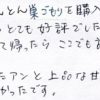 んとん巣ごもりを購入
とても好評でした
て帰ったら ここでも
たアンと上品な甘
かったです。